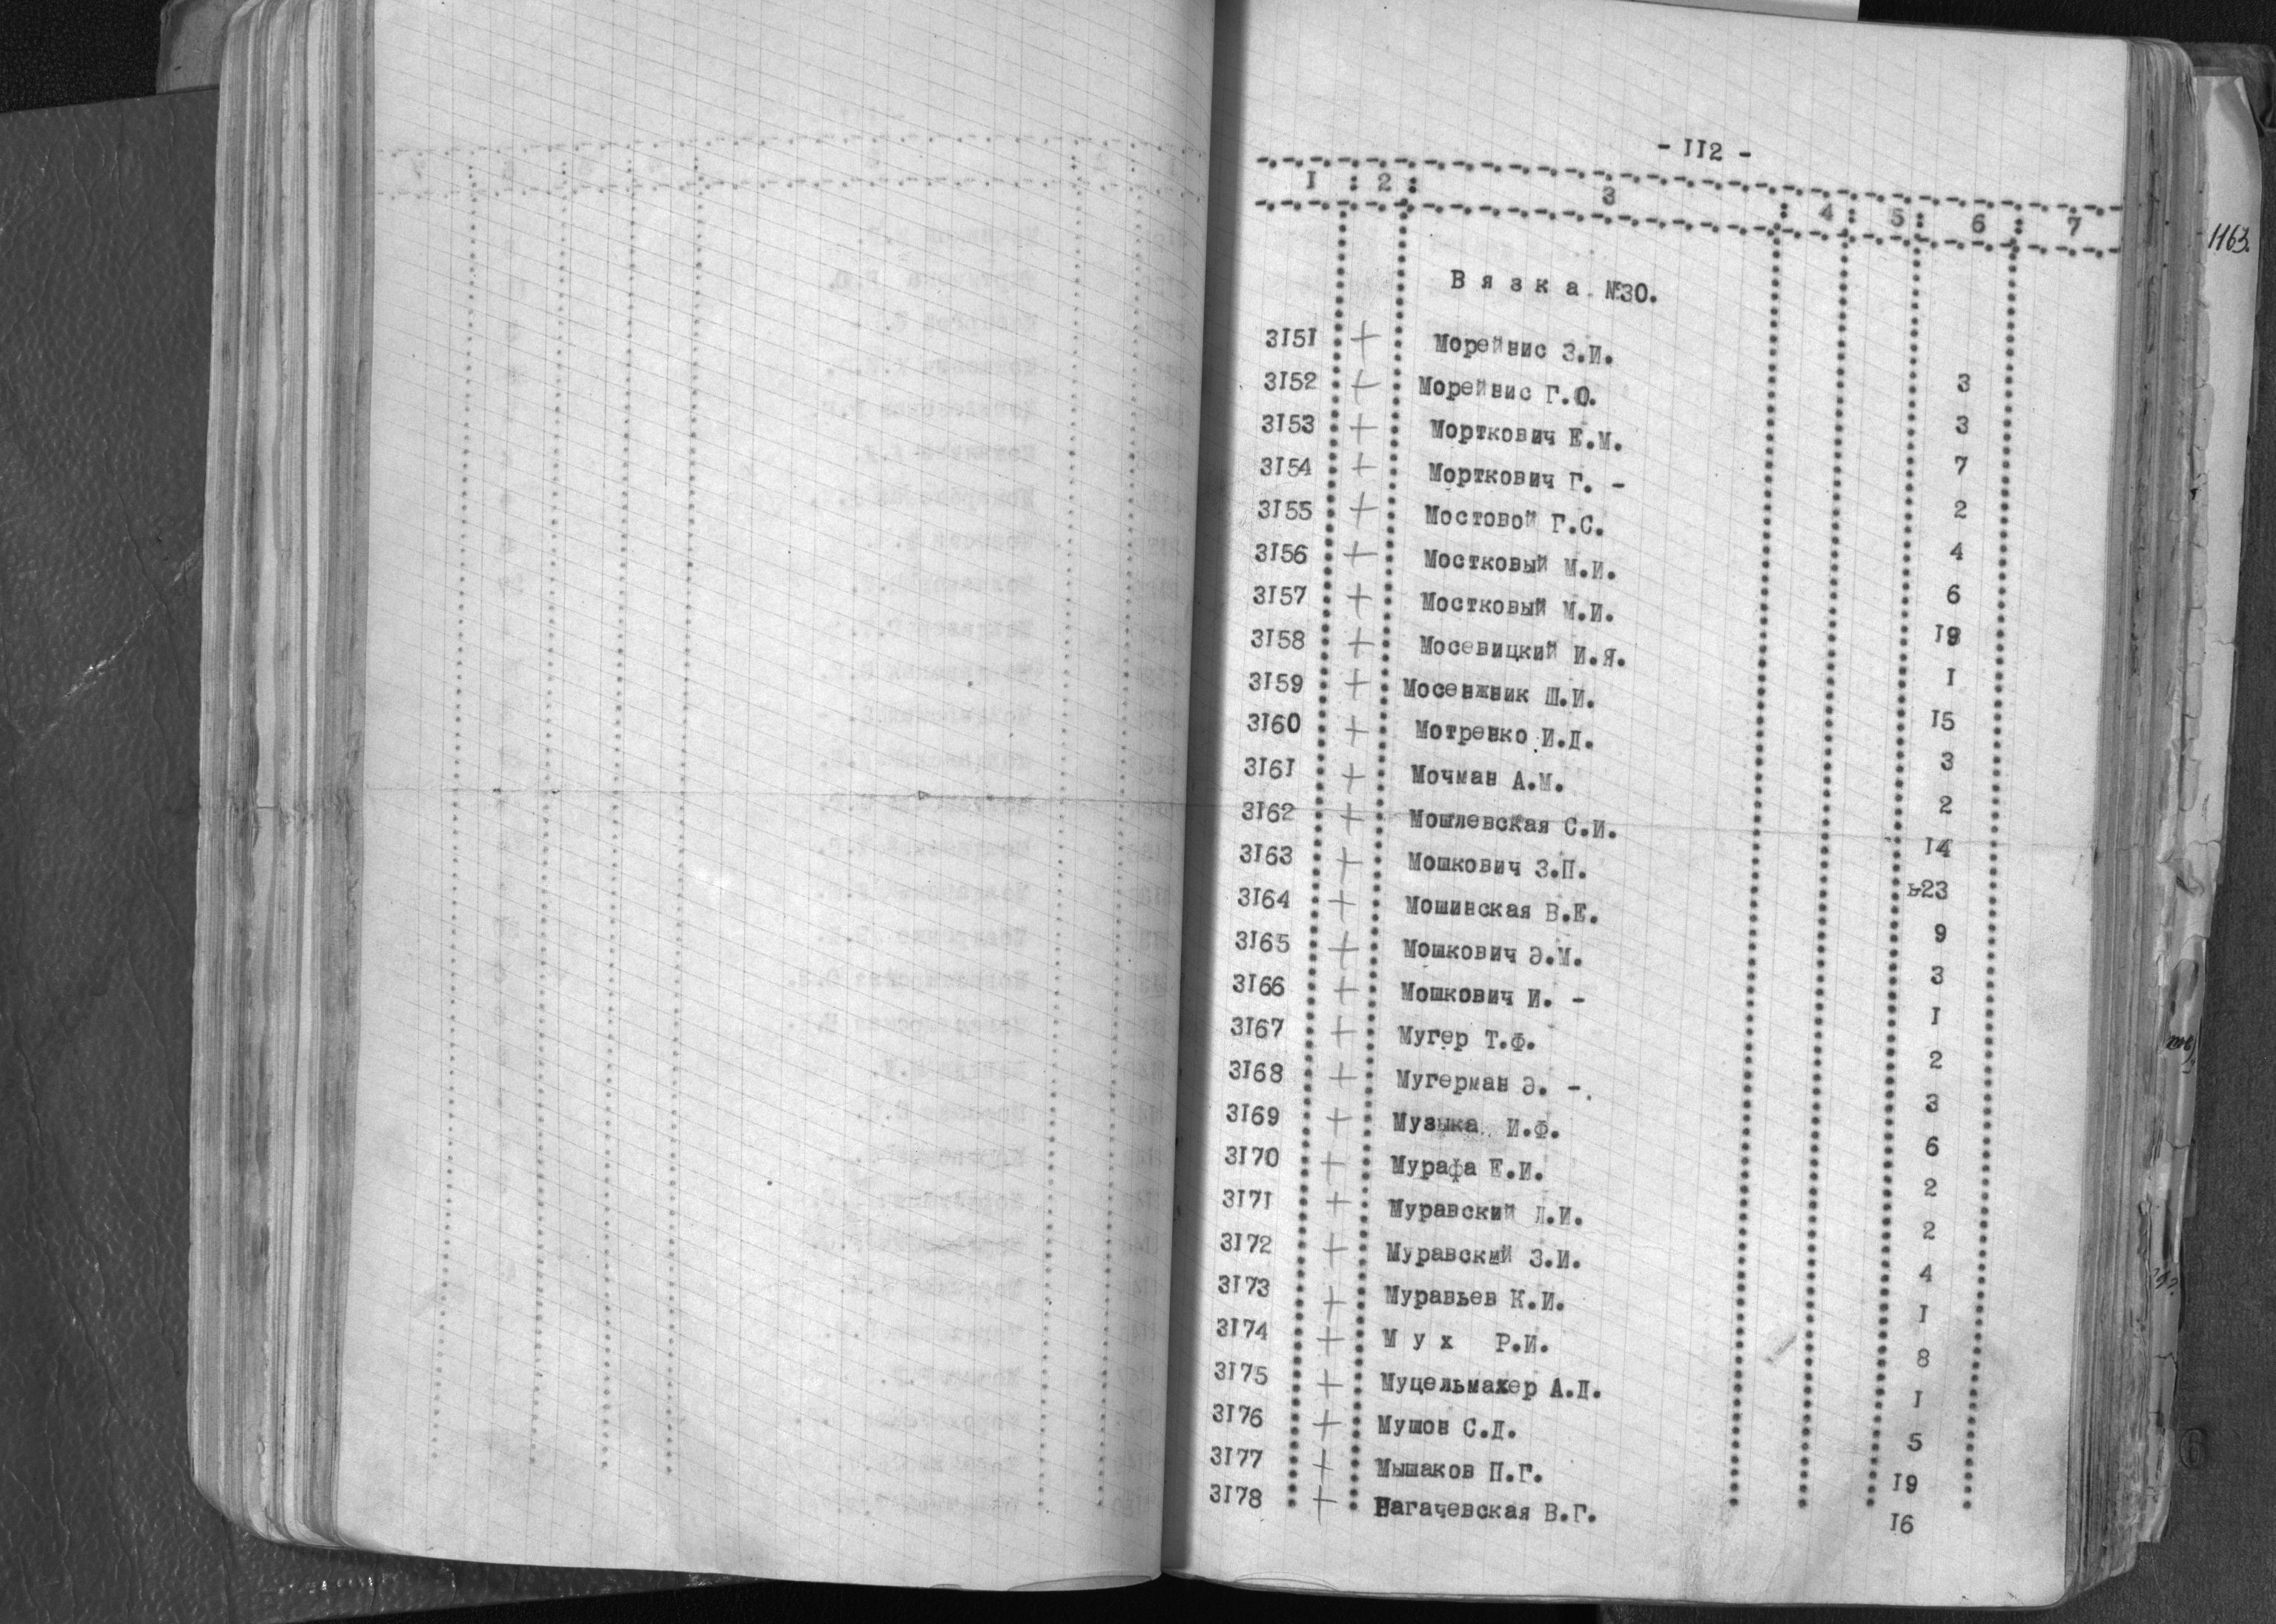 - II2 -
I : 2 : 3 : 4 : 5 : 6 : 7
Вязка №30.
3I5I + Морейнис З.И. 3
3I52 + Морейнис Г.О. 3
3I53 + Морткович Е.М. 7
3I54 + Морткович Г. - 2
3I55 + Мостовой Г.С. 4
3I56 + Мостковый М.И. 6
3I57 + Мостковый М.И. I9
3I58 + Мосевицкий И.Я. I
3I59 + Мосенжник Ш.И. I5
3I60 + Мотренко И.Д. 3
3I6I + Мочман А.М. 2
3I62 + Мошлевская С.И. I4
3I63 + Мошкович З.П. 23
3I64 + Мошинская В.Е. 9
3I65 + Мошкович Э.М. 3
3I66 + Мошкович И. - I
3I67 + Мугер Т.Ф. 2
3I68 + Мугерман Э. - 3
3I69 + Музыка И.Ф. 6
3I70 + Мурафа Е.И. 2
3I7I + Муравский Л.И. 2
3I72 + Муравский З.И. 4
3I73 + Муравьев К.И. I
3I74 + Мух Р.И. 8
3I75 + Муцельмахер А.Д. I
3I76 + Мушон С.Д. 5
3I77 + Мышаков П.Г. I9
3I78 + Нагачевская В.Г. I6
1163.